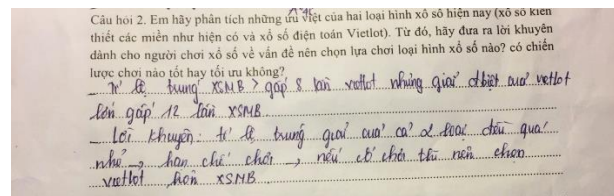 Câu hỏi 2. Em hãy phân tích những ưu việt của hai loại hình xổ số hiện nay (xổ số kiến
thiết các miền như hiện có và xổ số điện toán Vietlot). Từ đó, hãy đưa ra lời khuyên
dành cho người chơi xổ số về vấn đề nên chọn lựa chơi loại hình xổ số nào? có chiến
lược chơi nào tốt hay tối ưu không?
_ Tỉ lệ trúng XSMB > gấp 8 lần vietlot nhưng giải đbiệt của vietlot
lớn gấp 12 lần XSMB
_ Lời khuyên: tỉ lệ trúng giải của cả 2 loại đều quá
nhỏ → hạn chế chơi → nếu có chơi thì nên chọn
vietlot hơn XSMB